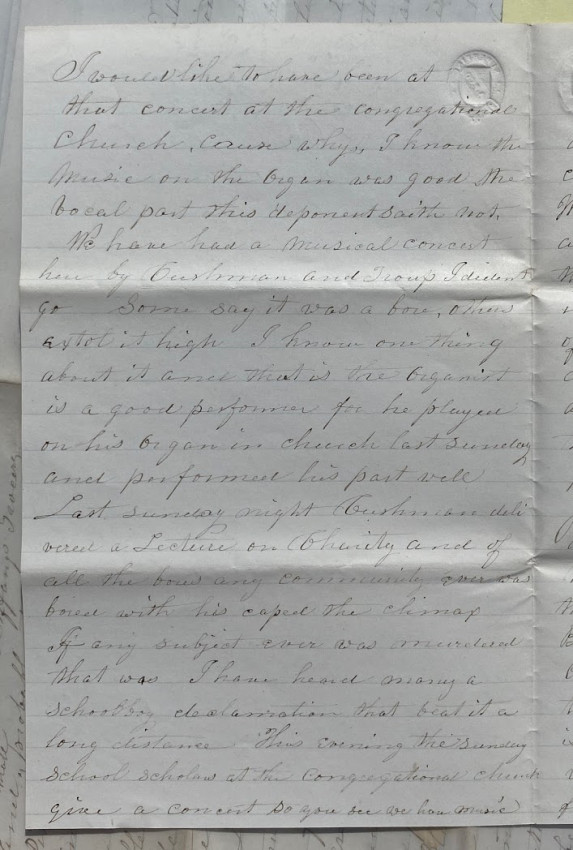 I would like to have been at
that concert at the congregational
Church, cause why, I know the
Music on the Organ was good, the
vocal part this deponent saith not.
We have had a musical concert
here by Cushman and Troup I dident
go Some say it was a bore, others
extol it high I know one thing
about it and that is the Organist
is a good performer for he played
on his Organ in church last sunday
and performed his part well
Last sunday night Cushman deli
vered a Lecture on Charity and of
all the bores any community ever was
bored with his caped the climax
If any subject ever was murdered
that was I have heard many a
schoolboy declamation that beat it a
long distance This evening the sunday
school scholars at the congregational church
give a concert so you see we have music